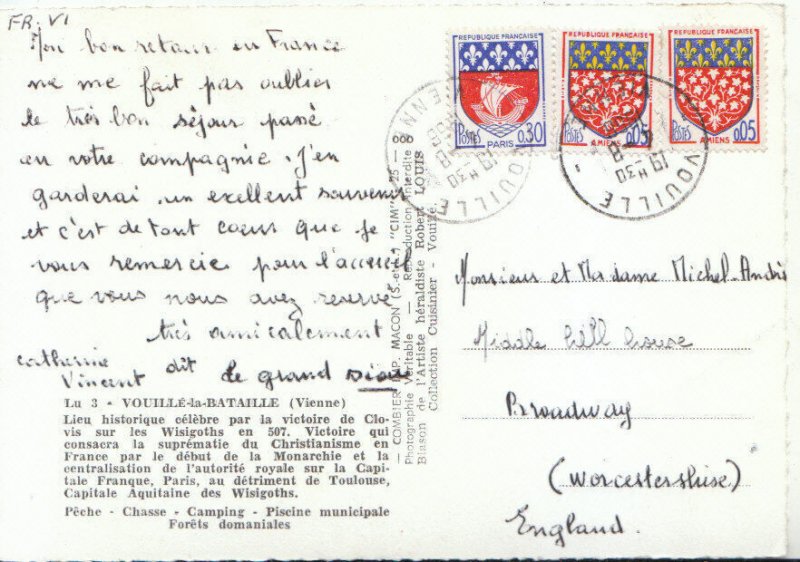 FR. VI
Mon bon retour en France
ne me fait pas oublier
le très bon séjour passé
en votre compagnie. J'en
garderai un excellent souvenir
et c'est de tout coeur que je
vous remercie pour l'accueil
que vous nous avez reservé
très amicalement
catherine
Vincent dit le grand
Lu 3 - VOUILLÉ-la-BATAILLE (Vienne)
Lieu historique célèbre par la victoire de Clo-
vis sur les Wisigoths en 507. Victoire qui
consacra la suprématie du Christianisme en
France par le début de la Monarchie et la
centralisation de l'autorité royale sur la Capi-
tale Franque, Paris, au détriment de Toulouse,
Capitale Aquitaine des Wisigoths.
Pêche - Chasse - Camping - Piscine municipale
Forêts domaniales
COMBIER IMP. MACON (S.-et-L.) "CIM"
Photographie Véritable — Reproduction interdite
Blason de l'Artiste héraldiste Robert LOUIS
Collection Cuisinier - Vouillé
REPUBLIQUE FRANÇAISE
POSTES 0,30
PARIS
REPUBLIQUE FRANÇAISE
POSTES 0,05
AMIENS
REPUBLIQUE FRANÇAISE
POSTES 0,05
AMIENS
VOUILLE
VIENNE
19 H 30
VOUILLE
19 H 30
Monsieur et Madame Michel-André
Middle hill house
Broadway
(Worcestershise)
England.